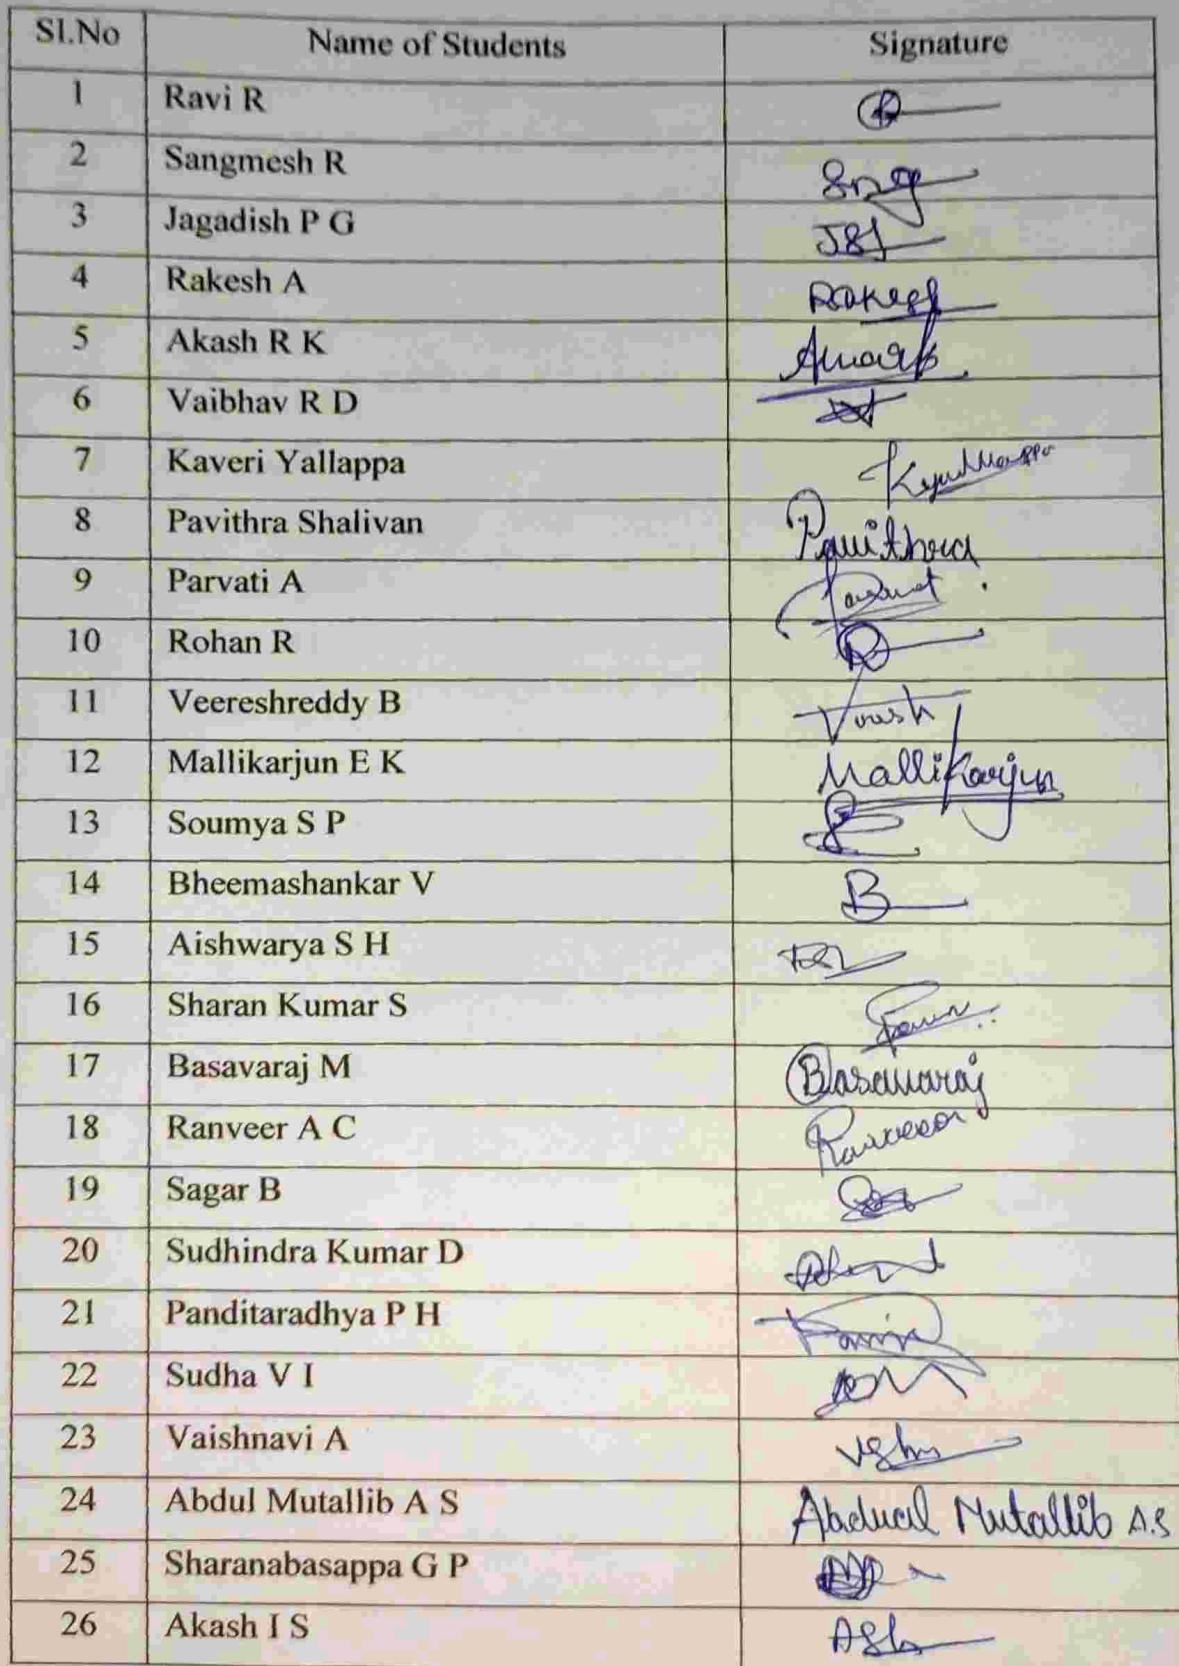 Sl.No Name of Students Signature
1 Ravi R
2 Sangmesh R
3 Jagadish P G
4 Rakesh A Rakesh
5 Akash R K
6 Vaibhav R D
7 Kaveri Yallappa
8 Pavithra Shalivan Pavithra
9 Parvati A
10 Rohan R
11 Veereshreddy B
12 Mallikarjun E K Mallikarjun
13 Soumya S P
14 Bheemashankar V B
15 Aishwarya S H
16 Sharan Kumar S
17 Basavaraj M Basavaraj
18 Ranveer A C Ranveer
19 Sagar B
20 Sudhindra Kumar D
21 Panditaradhya P H
22 Sudha V I
23 Vaishnavi A
24 Abdul Mutallib A S Mutallib A.S
25 Sharanabasappa G P
26 Akash I S